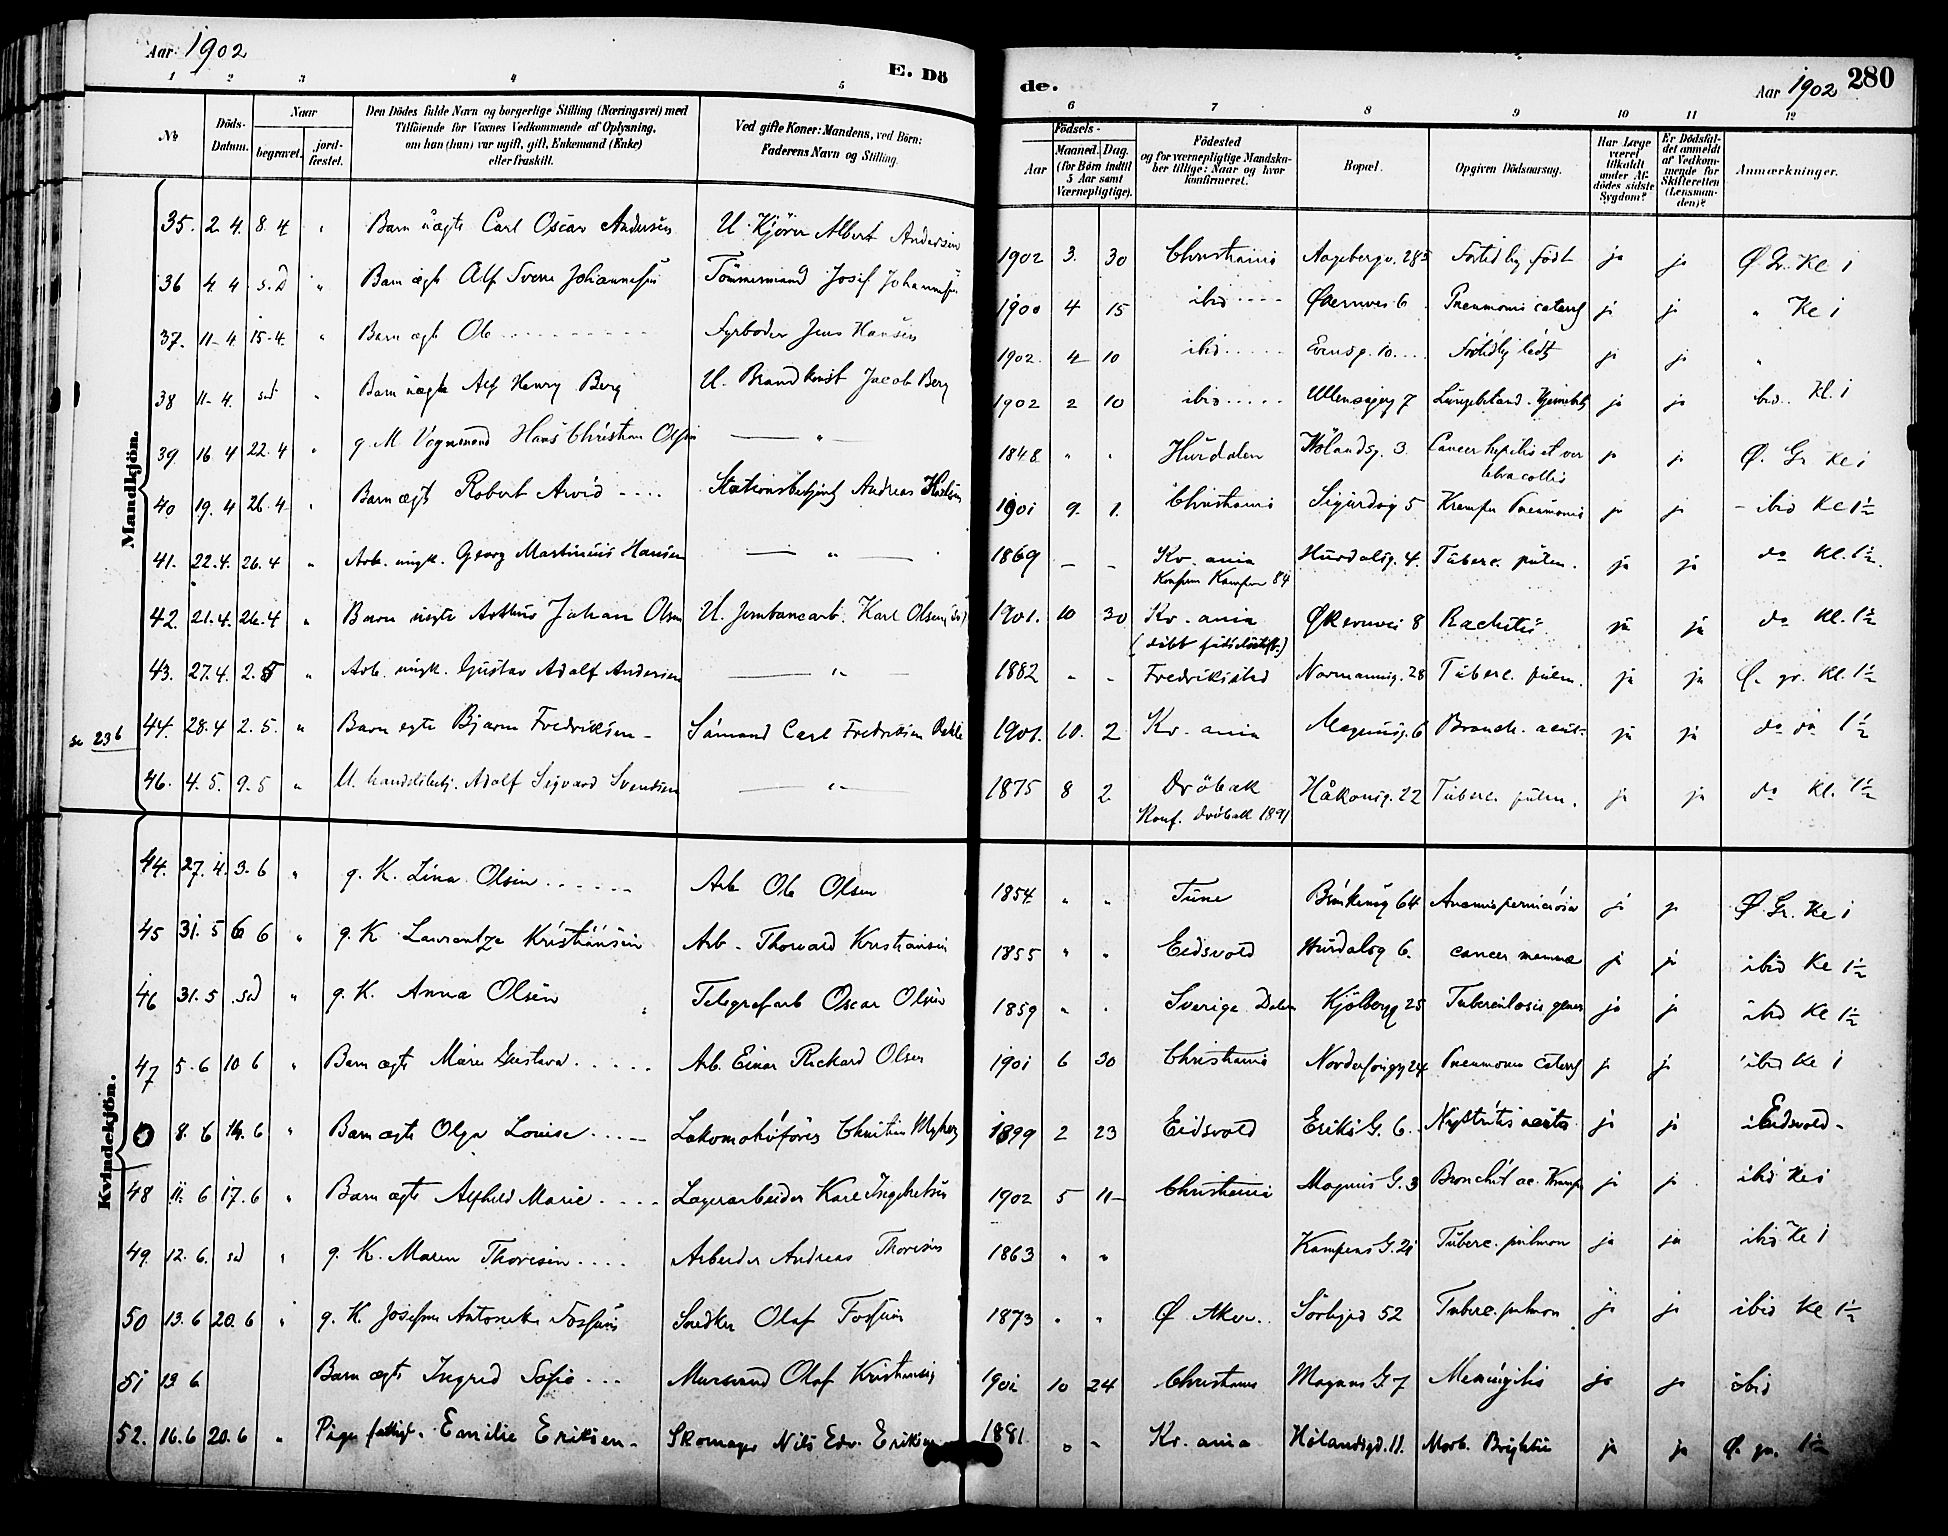 Aar 1902
E. Dö
de.
Aar 1902
280
1 2 3 4 5
6 7 8 9 10 11 12
No
Döds-Datum.
Naar
begravet.
jord-fæstet.
Den Dödes fulde Navn og borgerlige Stilling (Næringsvei) med
Tilföiende for Voxnes Vedkommende af Oplysning,
om han (hun) var ugift, gift, Enkemand (Enke)
eller fraskilt.
Ved gifte Koner: Mandens, ved Börn:
Faderens Navn og Stilling.
Födsels-
Aar
Maaned. Dag.
(for Börn indtil
5 Aar samt
Værnepligtige).
Födested
og for værnepligtige Mandska-
ber tillige: Naar og hvor
konfirmeret.
Bopæl.
Opgiven Dödsaarsag.
Har Læge
været
tilkaldt
under Af-
dödes sidste
Sygdom?
Er Dödsfal-
det anmeldt
af Vedkom-
mende for
Skifteretten
(Lensman-
den)?
Anmærkninger.
Mandkjön.
35. 2. 4. 8. 4 " Barn uægte Carl Oscar Andersen U. Kjörer Albert Andersen 1902 3. 30 Christiania Aagebergv. 28 Fortidlig födt ja ja Ø Gr. Kl 1
36 4. 4 s.d " Barn ægte Alf Sverre Johannesen Tömmermand Josef Johannesen 1900 4 15 ibid Økernvei 6 Pneumoni catarrh ja ja " Kl 1
37. 11-4. 15-4. " Barn ægte Ole Fyrböder Jens Hansen 1902. 4 10 ibid Evensg. 10 Fortidlig födt ja ja "
38 11-4. sd " Barn uægte Alf Henry Berg U. Brandkonst Jacob Berg 1902 2 10 ibid Ullensagerg 7 ja ja ibid. Kl. 1
39. 16 4 22. 4 " g. M Vognmand Hans Christian Olsen " 1848 " " Hurdalen Hölandsg. 3 Cancer hepatis et ver
tebra collis ja ja Ø. Gr Kl 1
40 19. 4 26. 4. " Barn ægte Robert Arvid Stationsbetjent Andreas 1901 9. 1. Christiania Sigurdsg 5 Krampe Pneumoni ja ja - ibid Kl 1½
41. 22. 4. 26. 4 " Arb. ungk. Georg Martinius Hansen " 1869 - - Kr. ania Hurdalsg. 4. Tuberc. pulm. ja ja do Kl. 1½
Kampen 84
42. 21. 4. 26. 4 " Barn uegte Arthur Johan Olsen U. Jernbanearb. Karl Olsen 1901. 10 30 Kr. ania Økernvei 8 Rachitis ja ja do Kl. 1½
(döbt
43. 27. 4. 2. 5 " Arb. ungk. Gustav Adolf Andersen " 1882 " - Fredrikstad Normannsg. 28 Tuberc. pulm. ja ja Ø. gr. Kl. 1½
se 236 44. 28. 4 2. 5. " Barn egte Bjarne Fredriksen - Sömand Carl Fredriksen 1901. 10. 2 Kr. ania Magnusg. 6 Bronch. acut. ja ja do do 1½
46. 4. 5. 9. 5 " U. handelsbetj. Adolf Sigvard Svendsen " 1875 8 2 Dröbak Håkonsg. 22 Tuberc. pulm. ja ja do Kl. 1½
Konf. Dröbak 1891
Kvindekjön.
44. 27. 4. 3. 6 " g. K. Lina Olsen Arb Ole Olsen 1854 " " Tune Brinkeng 64 Anæmia perniciosa ja ja Ø Gr. Kl 1
45 31. 5 6 6 " g. K Laurentze Kristiansen Arb. Thorvard Kristiansen 1855 " " Eidsvold Hurdalsg 6. cancer mammæ ja ja ibid Kl 1½
46 31. 5 sd " g. K. Anna Olsen Telegrafarb Oscar Olsen 1859 " " Sverige Kjölbergg 25 Tuberculosis ja ja ibid Kl 1½
47 5. 6 10 6 " Barn ægte Marie Gustava Arb. Einar Rickard Olsen 1901 6 30 Christiania Pneumoni Catarrh ja ja ibid Kl 1
0 8. 6 14. 6 " Barn ægte Olga Louise Lokomotivförer Christian 1899 2 23 Eidsvold Eriks G. 6. ja ja Eidsvold -
48 11. 6 17. 6 " Barn ægte Alfhild Marie Lagerarbeider Kare 1902 5 11 Christiania Magnus G. 3 Bronchit ac. Krampe ja ja ibid Kl 1
49. 12. 6. sd " g. K. Maren Thoresen Arbeider Andreas Thoresen 1863 " " Kampens G. 21 Tuberc. pulmon ja ja ibid Kl 1
50 13. 6 20. 6 " g. K. Josefine Fossum Snedker Olaf Fossum 1873 " " Ø Aker. Sörligd 52 Tuberc. pulmon ja ja ibid Kl 1½
51 13 6 Barn ægte Ingrid Sofie Murmand Olaf Kristiansen 1901 10 24 Christiania Magnus G 7 Meningitis ja ja ibid
52. 16. 6 20. 6 " Pige fattig. Emilie Eriksen - Skomager Nils Edv. Eriksen 1881 " - Kr. ania Hölandsgd. 11. Morb. Brightii ja ja Ø. gr. 1½